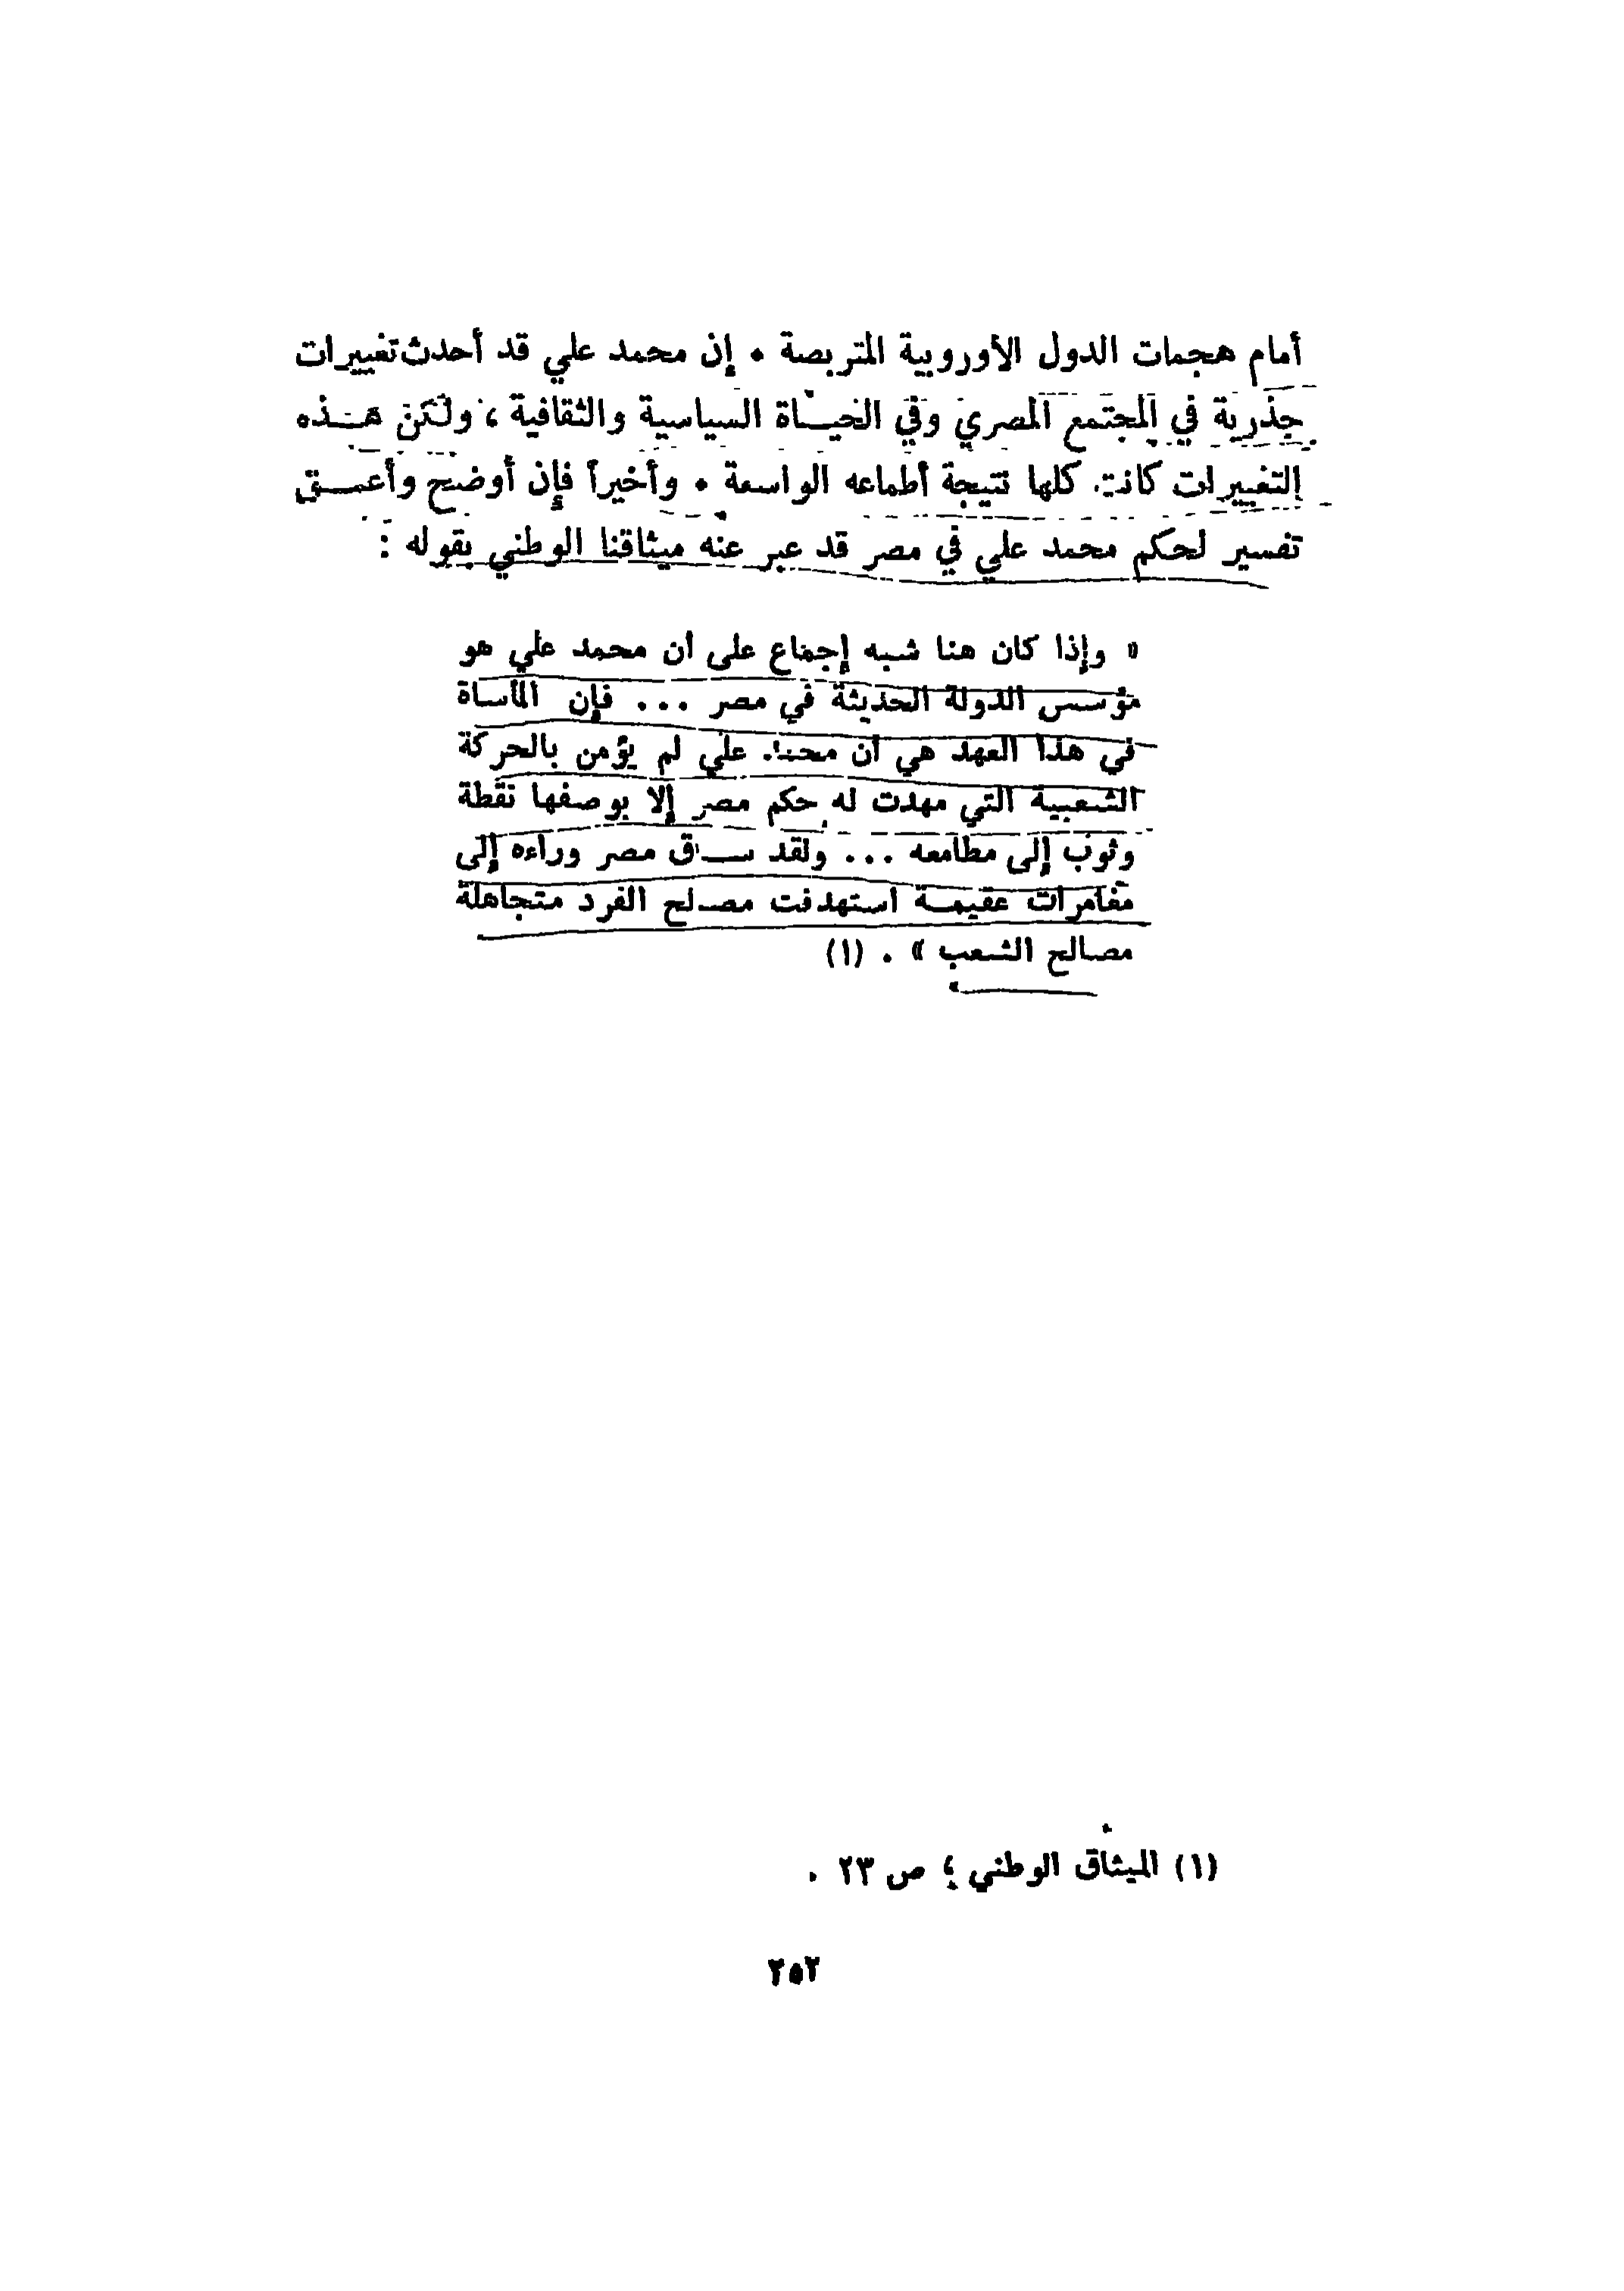 أمام هجمات الدول الأوروبية المتربصة . إن محمد علي قد أحدث تغييرات
جذرية في المجتمع المصري وفي الحيــاة السياسية والثقافية ، ولكن هــذه
التغييرات كانت كلها نتيجة أطماعه الواسعة . وأخيراً فإن أوضح وأعمــق
تفسير لحكم محمد علي في مصر قد عبر عنه ميثاقنا الوطني بقوله :
« وإذا كان هنا شبه إجماع على أن محمد علي هو
مؤسس الدولة الحديثة في مصر ... فإن المأساة
في هذا العهد هي أن محمد علي لم يؤمن بالحركة
الشعبية التي مهدت له حكم مصر إلا بوصفها نقطة
وثوب إلى مطامعه ... ولقد ســاق مصر وراءه إلى
مغامرات عقيمــة استهدفت مصــالح الفرد متجاهلة
مصالح الشعب » . (١)
(١) الميثاق الوطني ؛ ص ٢٣ .
٢٥٢